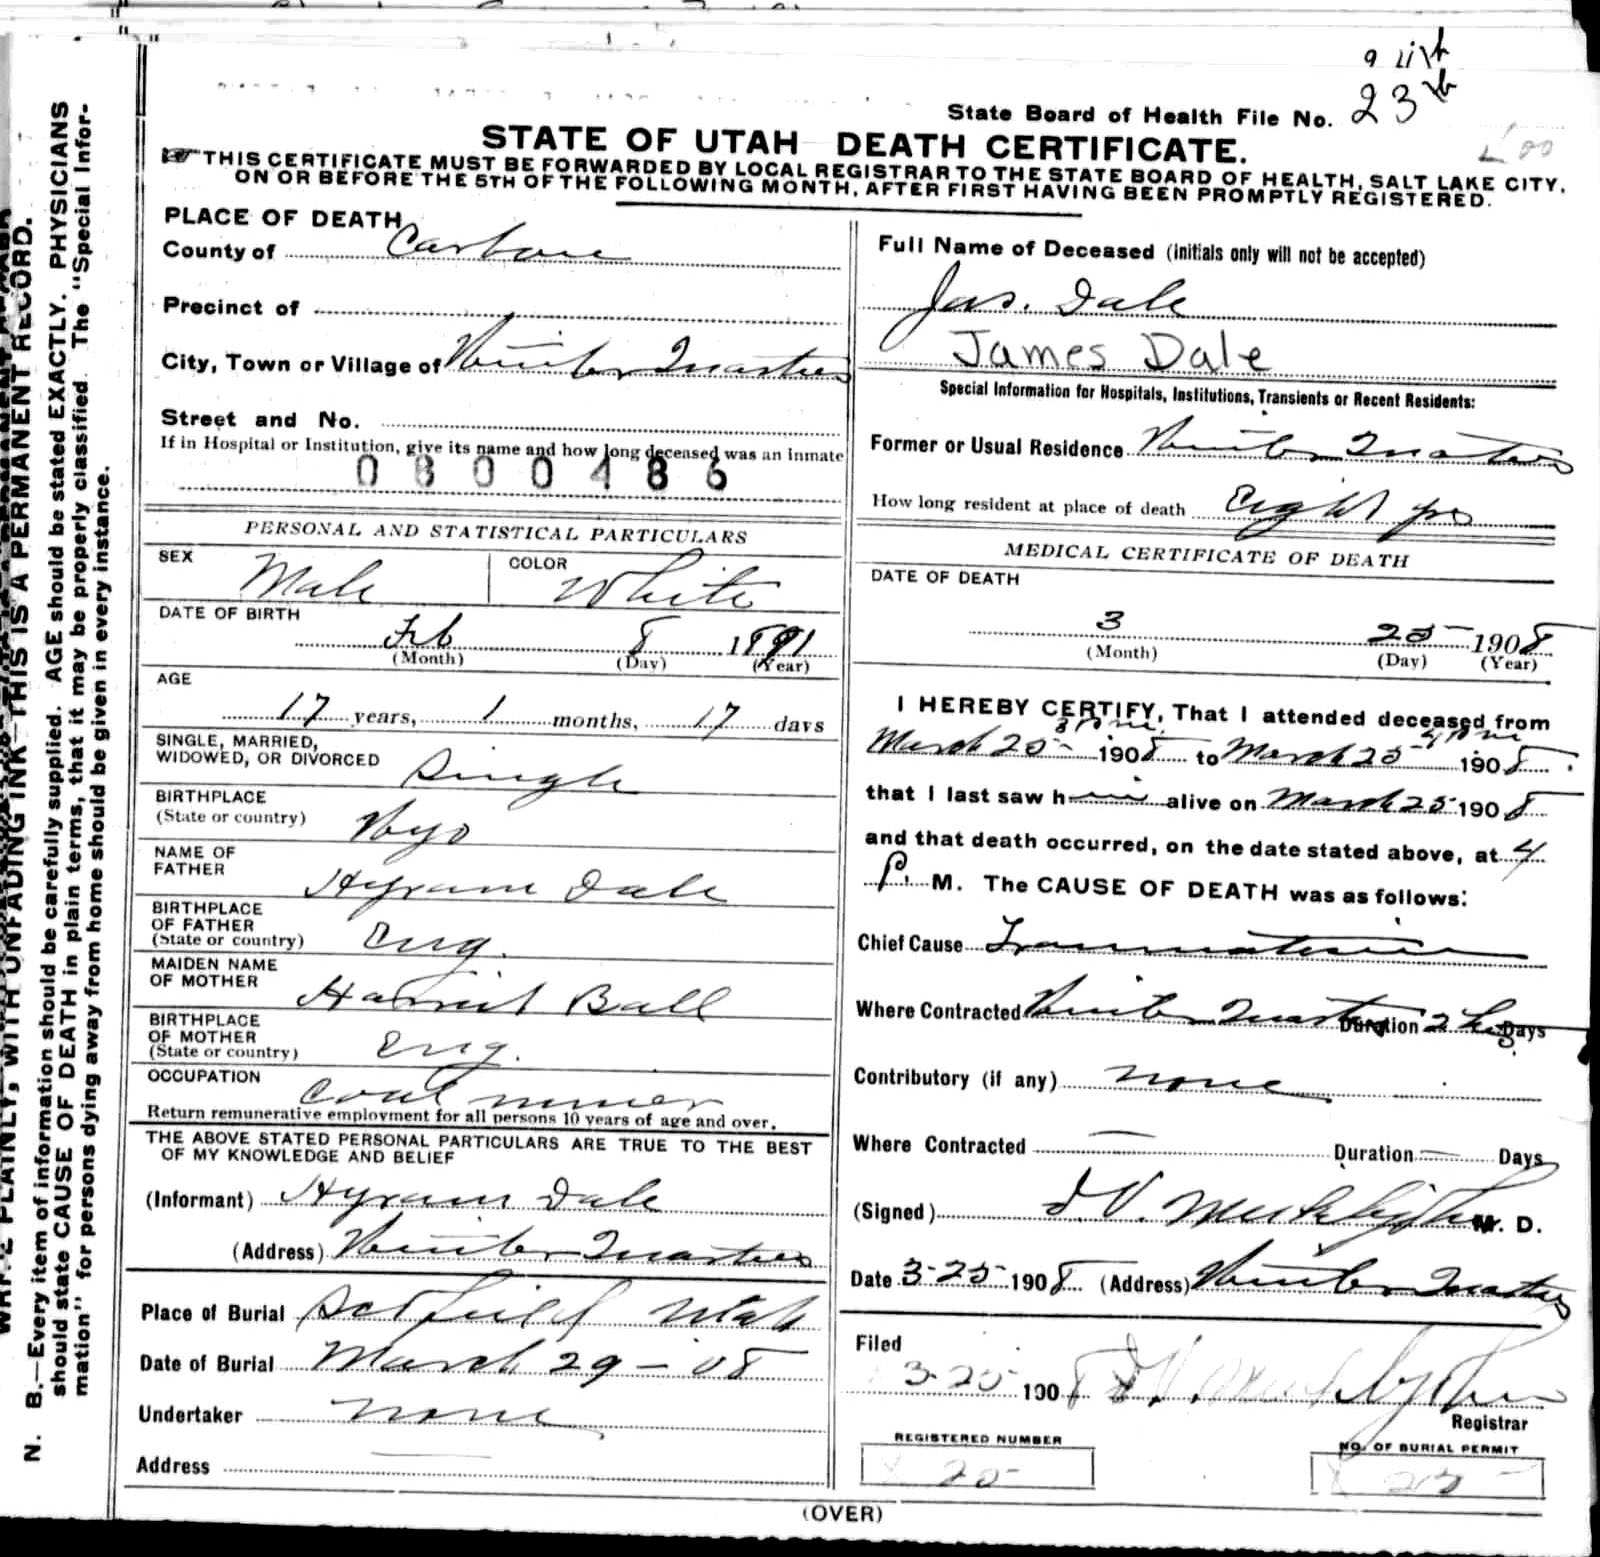 9 
23
State Board of Health File No.
STATE OF UTAH DEATH CERTIFICATE.
THIS CERTIFICATE MUST BE FORWARDED BY LOCAL REGISTRAR TO THE STATE BOARD OF HEALTH, SALT LAKE CITY,
ON OR BEFORE THE 5TH OF THE FOLLOWING MONTH, AFTER FIRST HAVING BEEN PROMPTLY REGISTERED.
WRITE PLAINLY, WITH UNFADING INK—THIS IS A PERMANENT RECORD.
N. B.—Every item of information should be carefully supplied. AGE should be stated EXACTLY. PHYSICIANS
should state CAUSE OF DEATH in plain terms, that it may be properly classified. The "Special Infor-
mation" for persons dying away from home should be given in every instance.
PLACE OF DEATH
County of Carbon
Precinct of
City, Town or Village of Winter Quarters
Street and No.
If in Hospital or Institution, give its name and how long deceased was an inmate
0800486
PERSONAL AND STATISTICAL PARTICULARS
SEX Male COLOR White
DATE OF BIRTH
Feb 8 1891
(Month) (Day) (Year)
AGE
17 years, 1 months, 17 days
SINGLE, MARRIED,
WIDOWED, OR DIVORCED Single
BIRTHPLACE
(State or country) Wyo
NAME OF
FATHER Hyram Dale
BIRTHPLACE
OF FATHER
(State or country) Eng.
MAIDEN NAME
OF MOTHER Harriet Ball
BIRTHPLACE
OF MOTHER
(State or country) Eng.
OCCUPATION Coal miner
Return remunerative employment for all persons 10 years of age and over.
THE ABOVE STATED PERSONAL PARTICULARS ARE TRUE TO THE BEST
OF MY KNOWLEDGE AND BELIEF
(Informant) Hyram Dale
(Address) Winter Quarters
Place of Burial Scofield Utah
Date of Burial March 29-08
Undertaker none
Address
Full Name of Deceased (initials only will not be accepted)
Jas. Dale
James Dale
Special Information for Hospitals, Institutions, Transients or Recent Residents:
Former or Usual Residence Winter Quarters
How long resident at place of death Eight yrs
MEDICAL CERTIFICATE OF DEATH
DATE OF DEATH
3 25 1908
(Month) (Day) (Year)
I HEREBY CERTIFY, That I attended deceased from
3 PM 4 PM
March 25 1908 to March 25 1908
that I last saw him alive on March 25 1908
and that death occurred, on the date stated above, at 4
P. M. The CAUSE OF DEATH was as follows:
Chief Cause Traumatism
Where Contracted Winter Quarters Duration 2 hrs Days
Contributory (if any) none
Where Contracted — Duration — Days
(Signed) M. D.
Date 3-25 1908 (Address) Winter Quarters
Filed
3-25 1908
Registrar
REGISTERED NUMBER
25
NO. OF BURIAL PERMIT
(OVER)